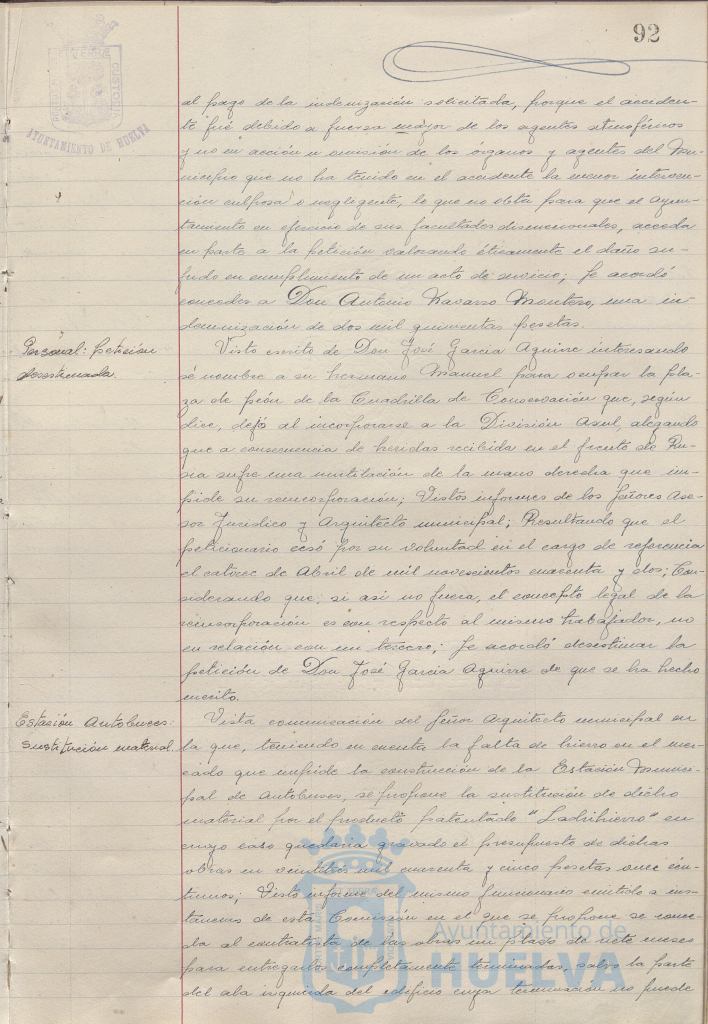 92
AYUNTAMIENTO DE HUELVA
al pago de la indemnización solicitada, porque el acciden-
te fué debido a fuerza mayor de los agentes atmosféricos
y no en acción u omisión de los órganos y agentes del Mu-
nicipio que no ha tenido en el accidente la menor interven-
ción culposa o negligente, lo que no obsta para que el Ayun-
tamiento en ejercicio de sus facultades discrecionales, acceda
en parte a la petición valorando éticamente el daño su-
frido en cumplimiento de un acto de servicio; Se acordó
conceder a Don Antonio Navarro Montero, una in-
demnización de dos mil quinientas pesetas.
Personal: petición
desestimada.
Visto escrito de Don José García Aguirre interesando
se nombre a su hermano Manuel para ocupar la pla-
za de peón de la Cuadrilla de Conservación que, según
dice, dejó al incorporarse a la División Azul, alegando
que a consecuencia de heridas recibida en el frente de Ru-
sia sufre una mutilación de la mano derecha que im-
pide su reincorporación; Vistos informes de los Señores Ase-
sor Jurídico y Arquitecto municipal; Resultando que el
peticionario cesó por su voluntad en el cargo de referencia
el catorce de Abril de mil novecientos cuarenta y dos; Con-
siderando que, si así no fuera, el concepto legal de la
reincorporación es con respecto al mismo trabajador, no
en relación con un tercero; Se acordó desestimar la
petición de Don José García Aguirre de que se ha hecho
mérito.
Estación Autobuses:
Sustitución material.
Vista comunicación del Señor Arquitecto municipal en
la que, teniendo en cuenta la falta de hierro en el mer-
cado que impide la construcción de la Estación Munici-
pal de Autobuses, se propone la sustitución de dicho
material por el producto patentado "Ladrihierro" en
cuyo caso quedaría gravado el presupuesto de dichas
obras en veintitrés mil cuarenta y cinco pesetas once cén-
timos; Visto informe del mismo funcionario emitido a ins-
tancias de esta Comisión en el que se propone se conce-
da al contratista de las obras un plazo de siete meses
para entregarlas completamente terminadas, salvo la parte
del ala izquierda del edificio cuya terminación no puede
Ayuntamiento de
HUELVA